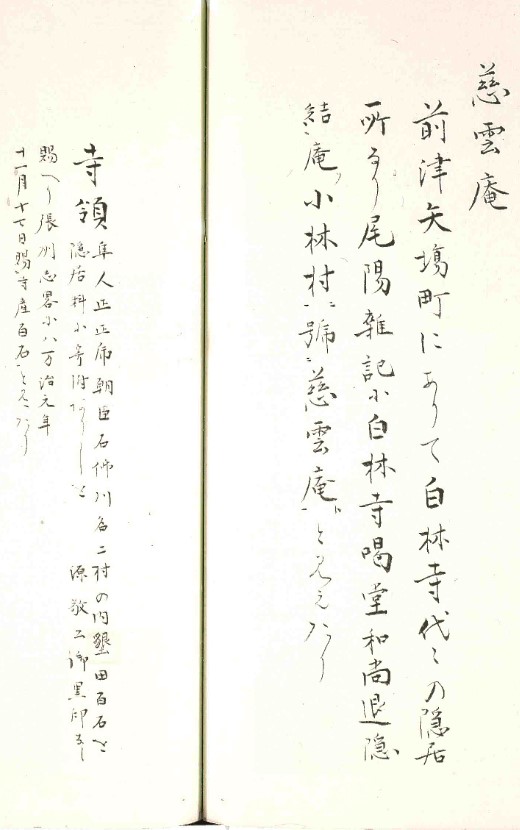 慈雲庵
前津矢場町にありて白林寺代々の隠居
所なり尾陽雑記に白林寺喝堂和尚退隠
結ニ庵ヲ小林村ニ一號ニ慈雲庵ト一と見えたり
寺領
隼人正正虎朝臣石仏川名二村の内墾田百石を
隠居料に寄附ありしを 源敬公御黒印を
賜へり張州志畧に八万治元年
十一月十七日賜寺産百石と見えたり